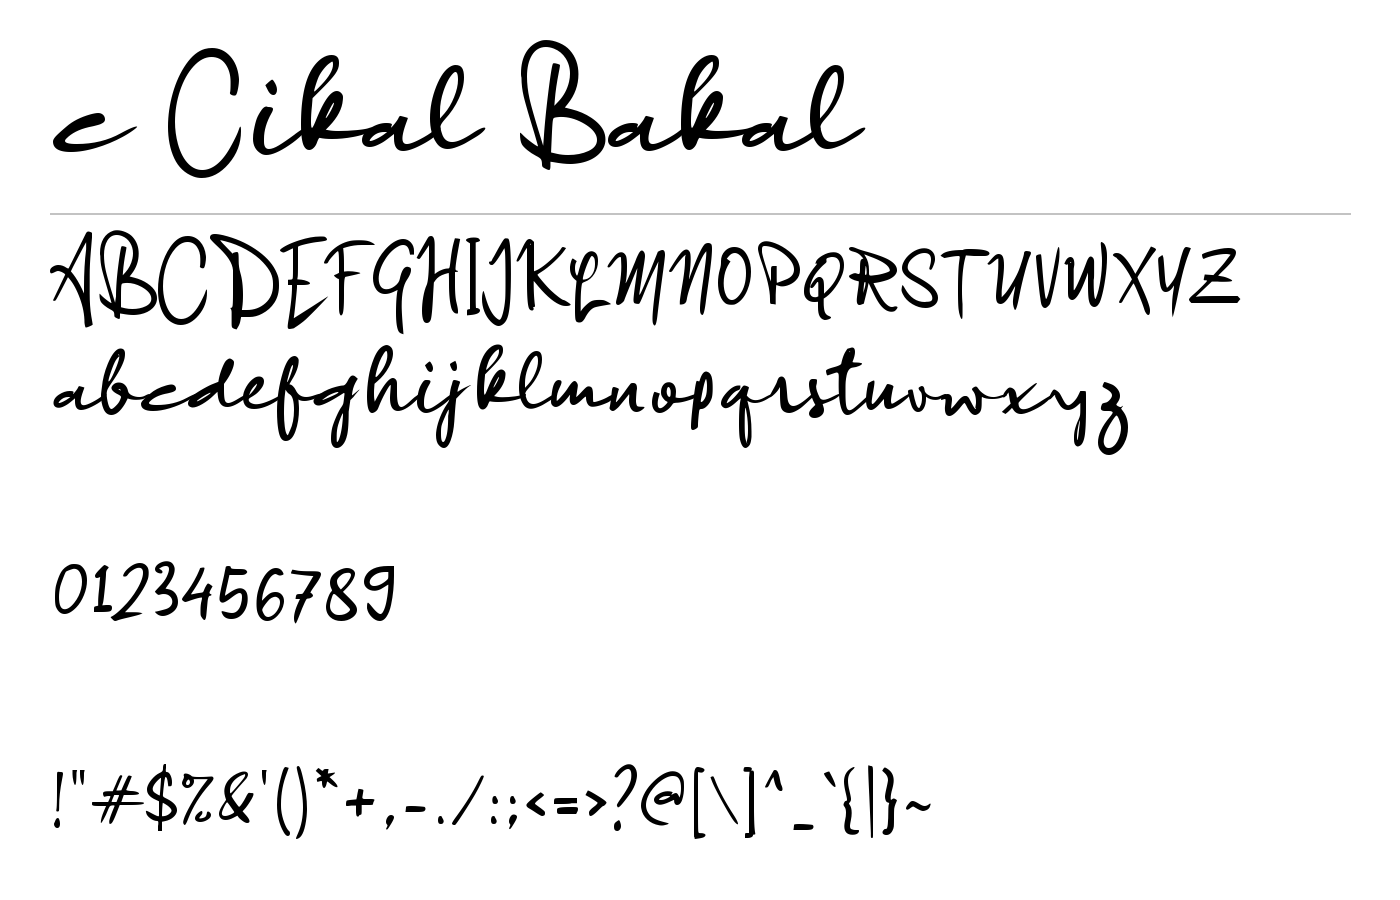 c Cikal Bakal
ABCDEFGHIJKLMNOPQRSTUVWXYZ
abcdefghijklmnopqrstuvwxyz
0123456789
!"#$%&'()*+,-./:;<=>?@[\]^_`{|}~